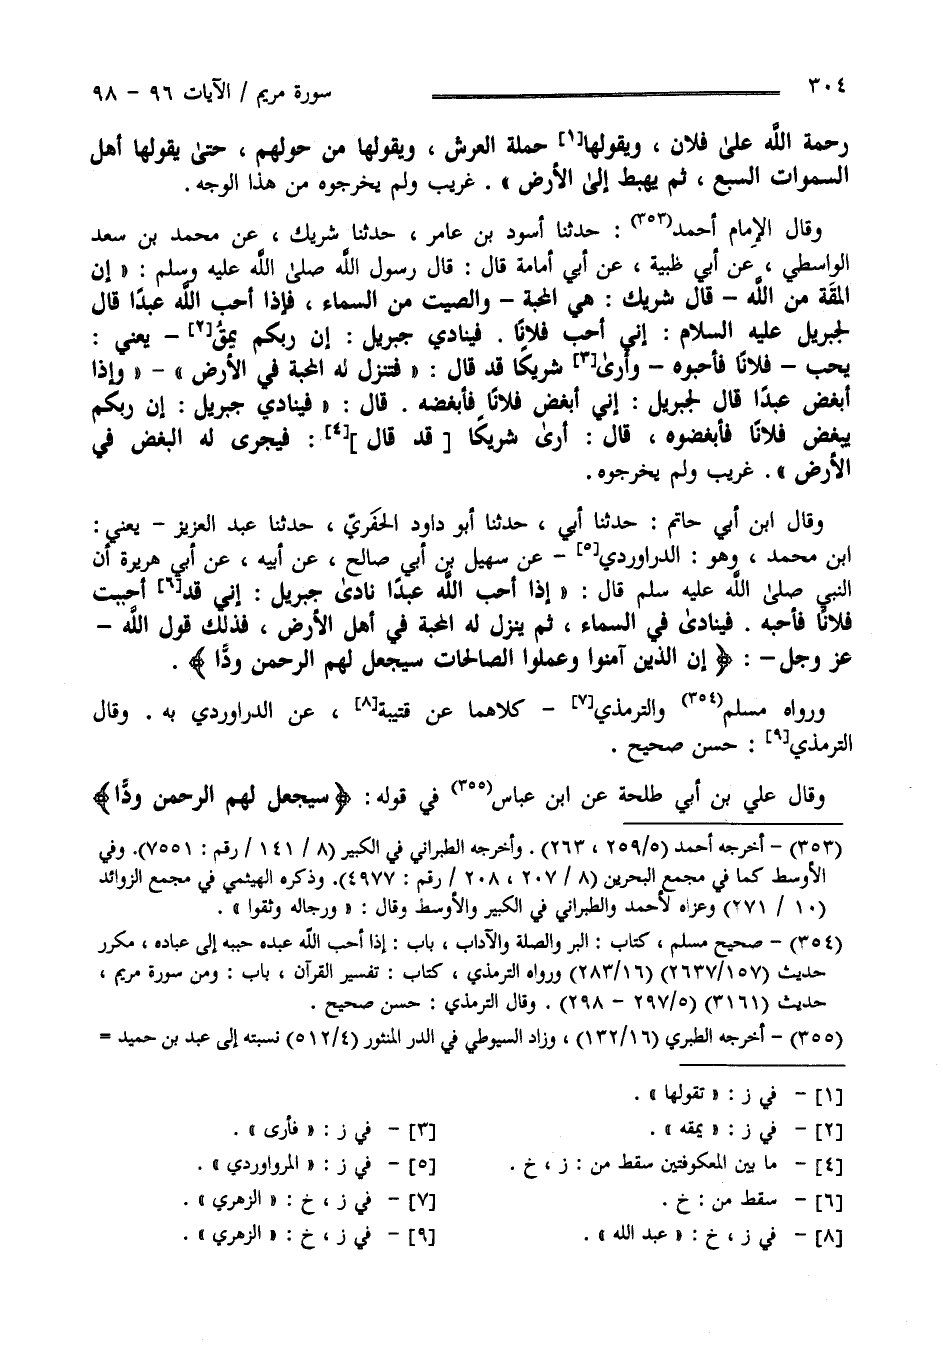 ٣٠٤ سورة مريم / الآيات ٩٦ - ٩٨
رحمة اللَّه على فلان ، ويقولها[١] حملة العرش ، ويقولها من حولهم ، حتى يقولها أهل
السموات السبع ، ثم يهبط إلى الأرض » . غريب ولم يخرجوه من هذا الوجه .
وقال الإمام أحمد(٣٥٣) : حدثنا أسود بن عامر ، حدثنا شريك ، عن محمد بن سعد
الواسطي ، عن أبي ظبية ، عن أبي أمامة قال : قال رسول اللَّه صلى اللَّه عليه وسلم : « إن
المقَة من اللَّه - قال شريك : هي المحبة - والصيت من السماء ، فإذا أحب اللَّه عبدًا قال
لجبريل عليه السلام : إني أحب فلانًا . فينادي جبريل : إن ربكم يمقُ[٢] - يعني :
يحب - فلانًا فأحبوه - وأرى[٣] شريكًا قد قال : « فتنزل له المحبة في الأرض » - « وإذا
أبغض عبدًا قال لجبريل : إني أبغض فلانًا فأبغضه . قال : « فينادي جبريل : إن ربكم
يبغض فلانًا فأبغضوه ، قال : أرى شريكًا [ قد قال ][٤] : فيجرى له البغض في
الأرض » . غريب ولم يخرجوه .
وقال ابن أبي حاتم : حدثنا أبي ، حدثنا أبو داود الحَفَريّ ، حدثنا عبد العزيز - يعني :
ابن محمد ، وهو : الدراوردي[٥] - عن سهيل بن أبي صالح ، عن أبيه ، عن أبي هريرة أن
النبي صلى اللَّه عليه سلم قال : « إذا أحب اللَّه عبدًا نادى جبريل : إني قد[٦] أحببت
فلانًا فأحبه . فينادى في السماء ، ثم ينزل له المحبة في أهل الأرض ، فذلك قول اللَّه -
عز وجل - : ﴿ إن الذين آمنوا وعملوا الصالحات سيجعل لهم الرحمن ودًّا ﴾ .
ورواه مسلم(٣٥٤) والترمذي[٧] - كلاهما عن قتيبة[٨] ، عن الدراوردي به . وقال
الترمذي[٩] : حسن صحيح .
وقال علي بن أبي طلحة عن ابن عباس(٣٥٥) في قوله : ﴿ سيجعل لهم الرحمن ودًّا ﴾
(٣٥٣) - أخرجه أحمد (٢٥٩/٥ ، ٢٦٣) . وأخرجه الطبراني في الكبير (٨ / ١٤١ / رقم : ٧٥٥١). وفي
الأوسط كما في مجمع البحرين (٨ / ٢٠٧ ، ٢٠٨ / رقم : ٤٩٧٧). وذكره الهيثمي في مجمع الزوائد
(١٠ / ٢٧١) وعزاه لأحمد والطبراني في الكبير والأوسط وقال : « ورجاله وثقوا » .
(٣٥٤) - صحيح مسلم ، كتاب : البر والصلة والآداب ، باب : إذا أحب اللَّه عبده حببه إلى عباده ، مكرر
حديث (٢٦٣٧/١٥٧) (٢٨٣/١٦) ورواه الترمذي ، كتاب : تفسير القرآن ، باب : ومن سورة مريم ،
حديث (٣١٦١) (٢٩٧/٥ - ٢٩٨) . وقال الترمذي : حسن صحيح .
(٣٥٥) - أخرجه الطبري (١٣٢/١٦) ، وزاد السيوطي في الدر المنثور (٥١٢/٤) نسبته إلى عبد بن حميد =
[١] - في ز : « تقولها » .
[٢] - في ز : « يمقه » . [٣] - في ز : « فأرى » .
[٤] - ما بين المعكوفتين سقط من : ز ، خ . [٥] - في ز : « المرواوردي » .
[٦] - سقط من : خ . [٧] - في ز ، خ : « الزهري » .
[٨] - في ز ، خ : « عبد الله » . [٩] - في ز ، خ : « الزهري » .